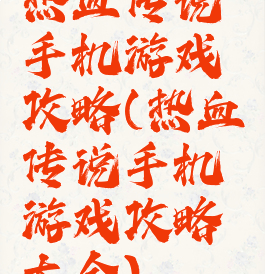 热血传说
手机游戏
攻略(热血
传说手机
游戏攻略
大全)